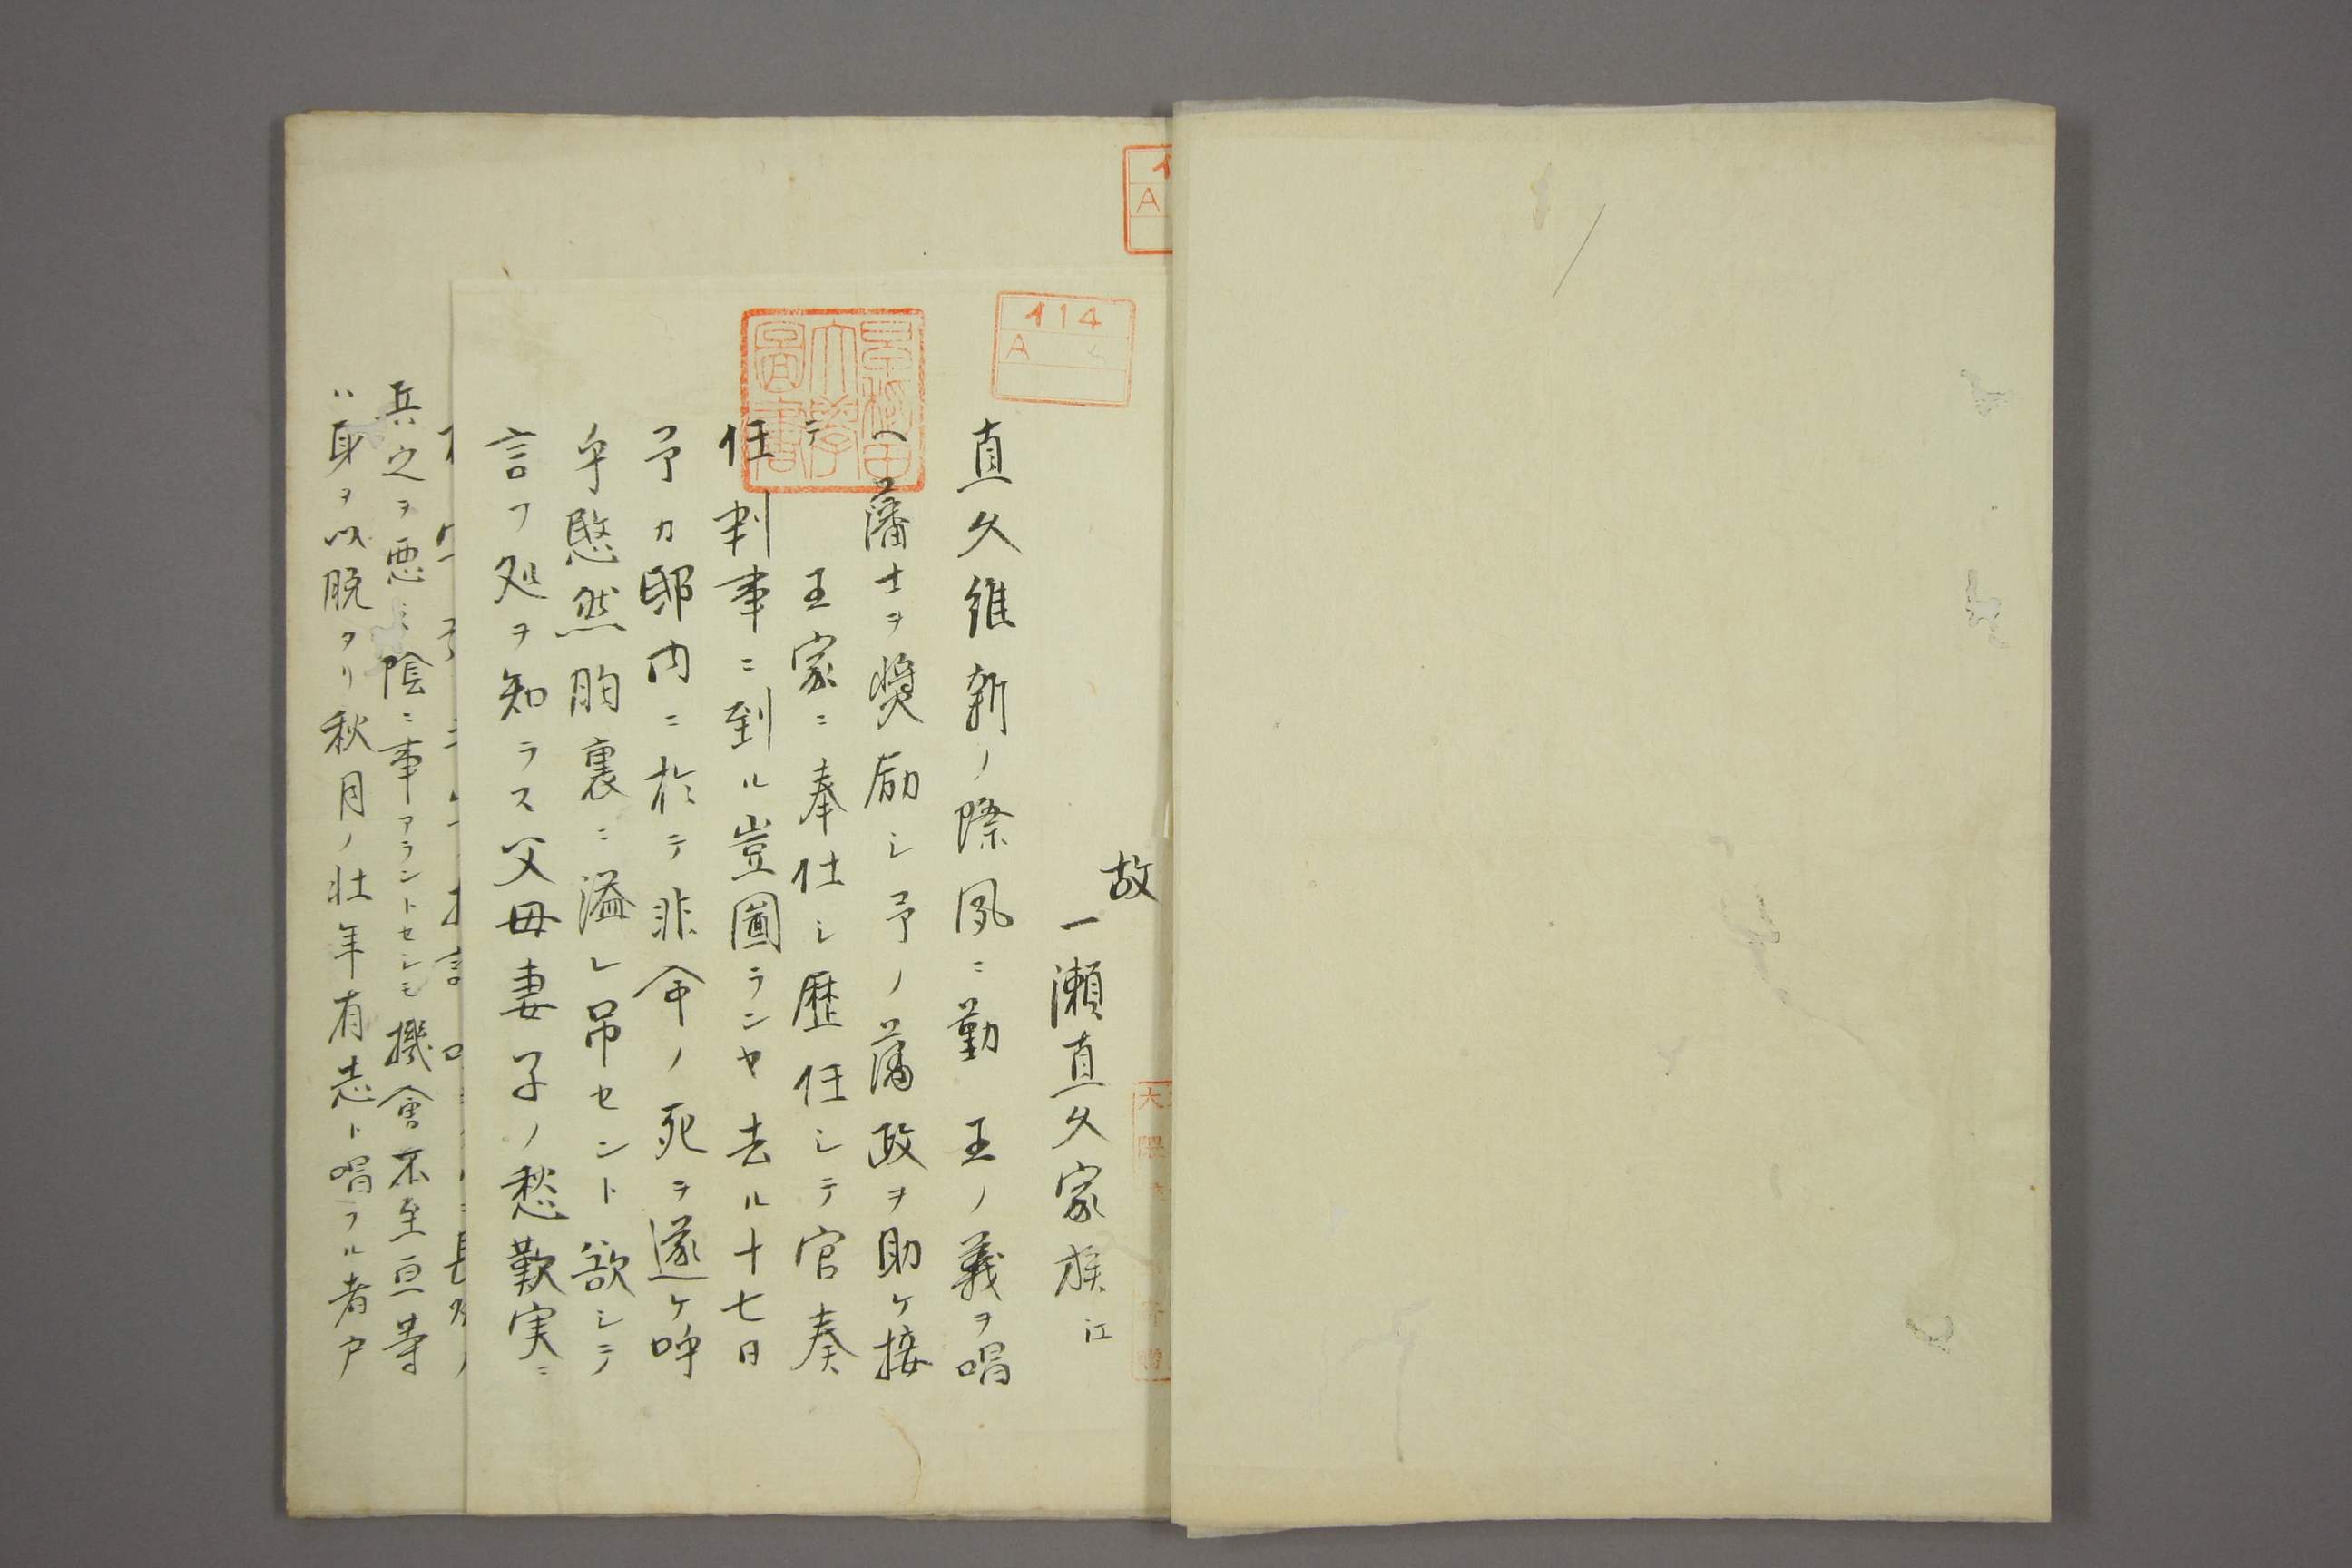 故
一瀬直久家族江
直久維新ノ際夙ニ勤　王ノ義ヲ唱
ヘ藩士ヲ奨励シ予ノ藩政ヲ助ケ接
テ　王家ニ奉仕シ歴任シテ官奏
任判事ニ到ル豈圖ランヤ去ル十七日
予カ邸内ニ於テ非命ノ死ヲ遂ケ呼
乎愍然胸裏ニ溢レ吊セント欲シテ
言フ処ヲ知ラス父母妻子ノ愁歎実ニ
兵之ヲ悪ミ陰ニ事アラントセシモ機會不至亘等
ハ身ヲ以脱タリ秋月ノ壮年有志ト唱フル者戸
イ14
A
早稲田大學圖書
A
大隈